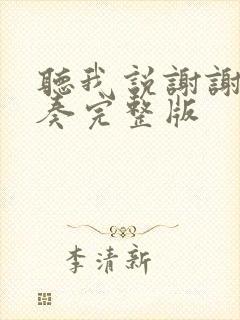 聽我說謝謝
奏完整版
李清新